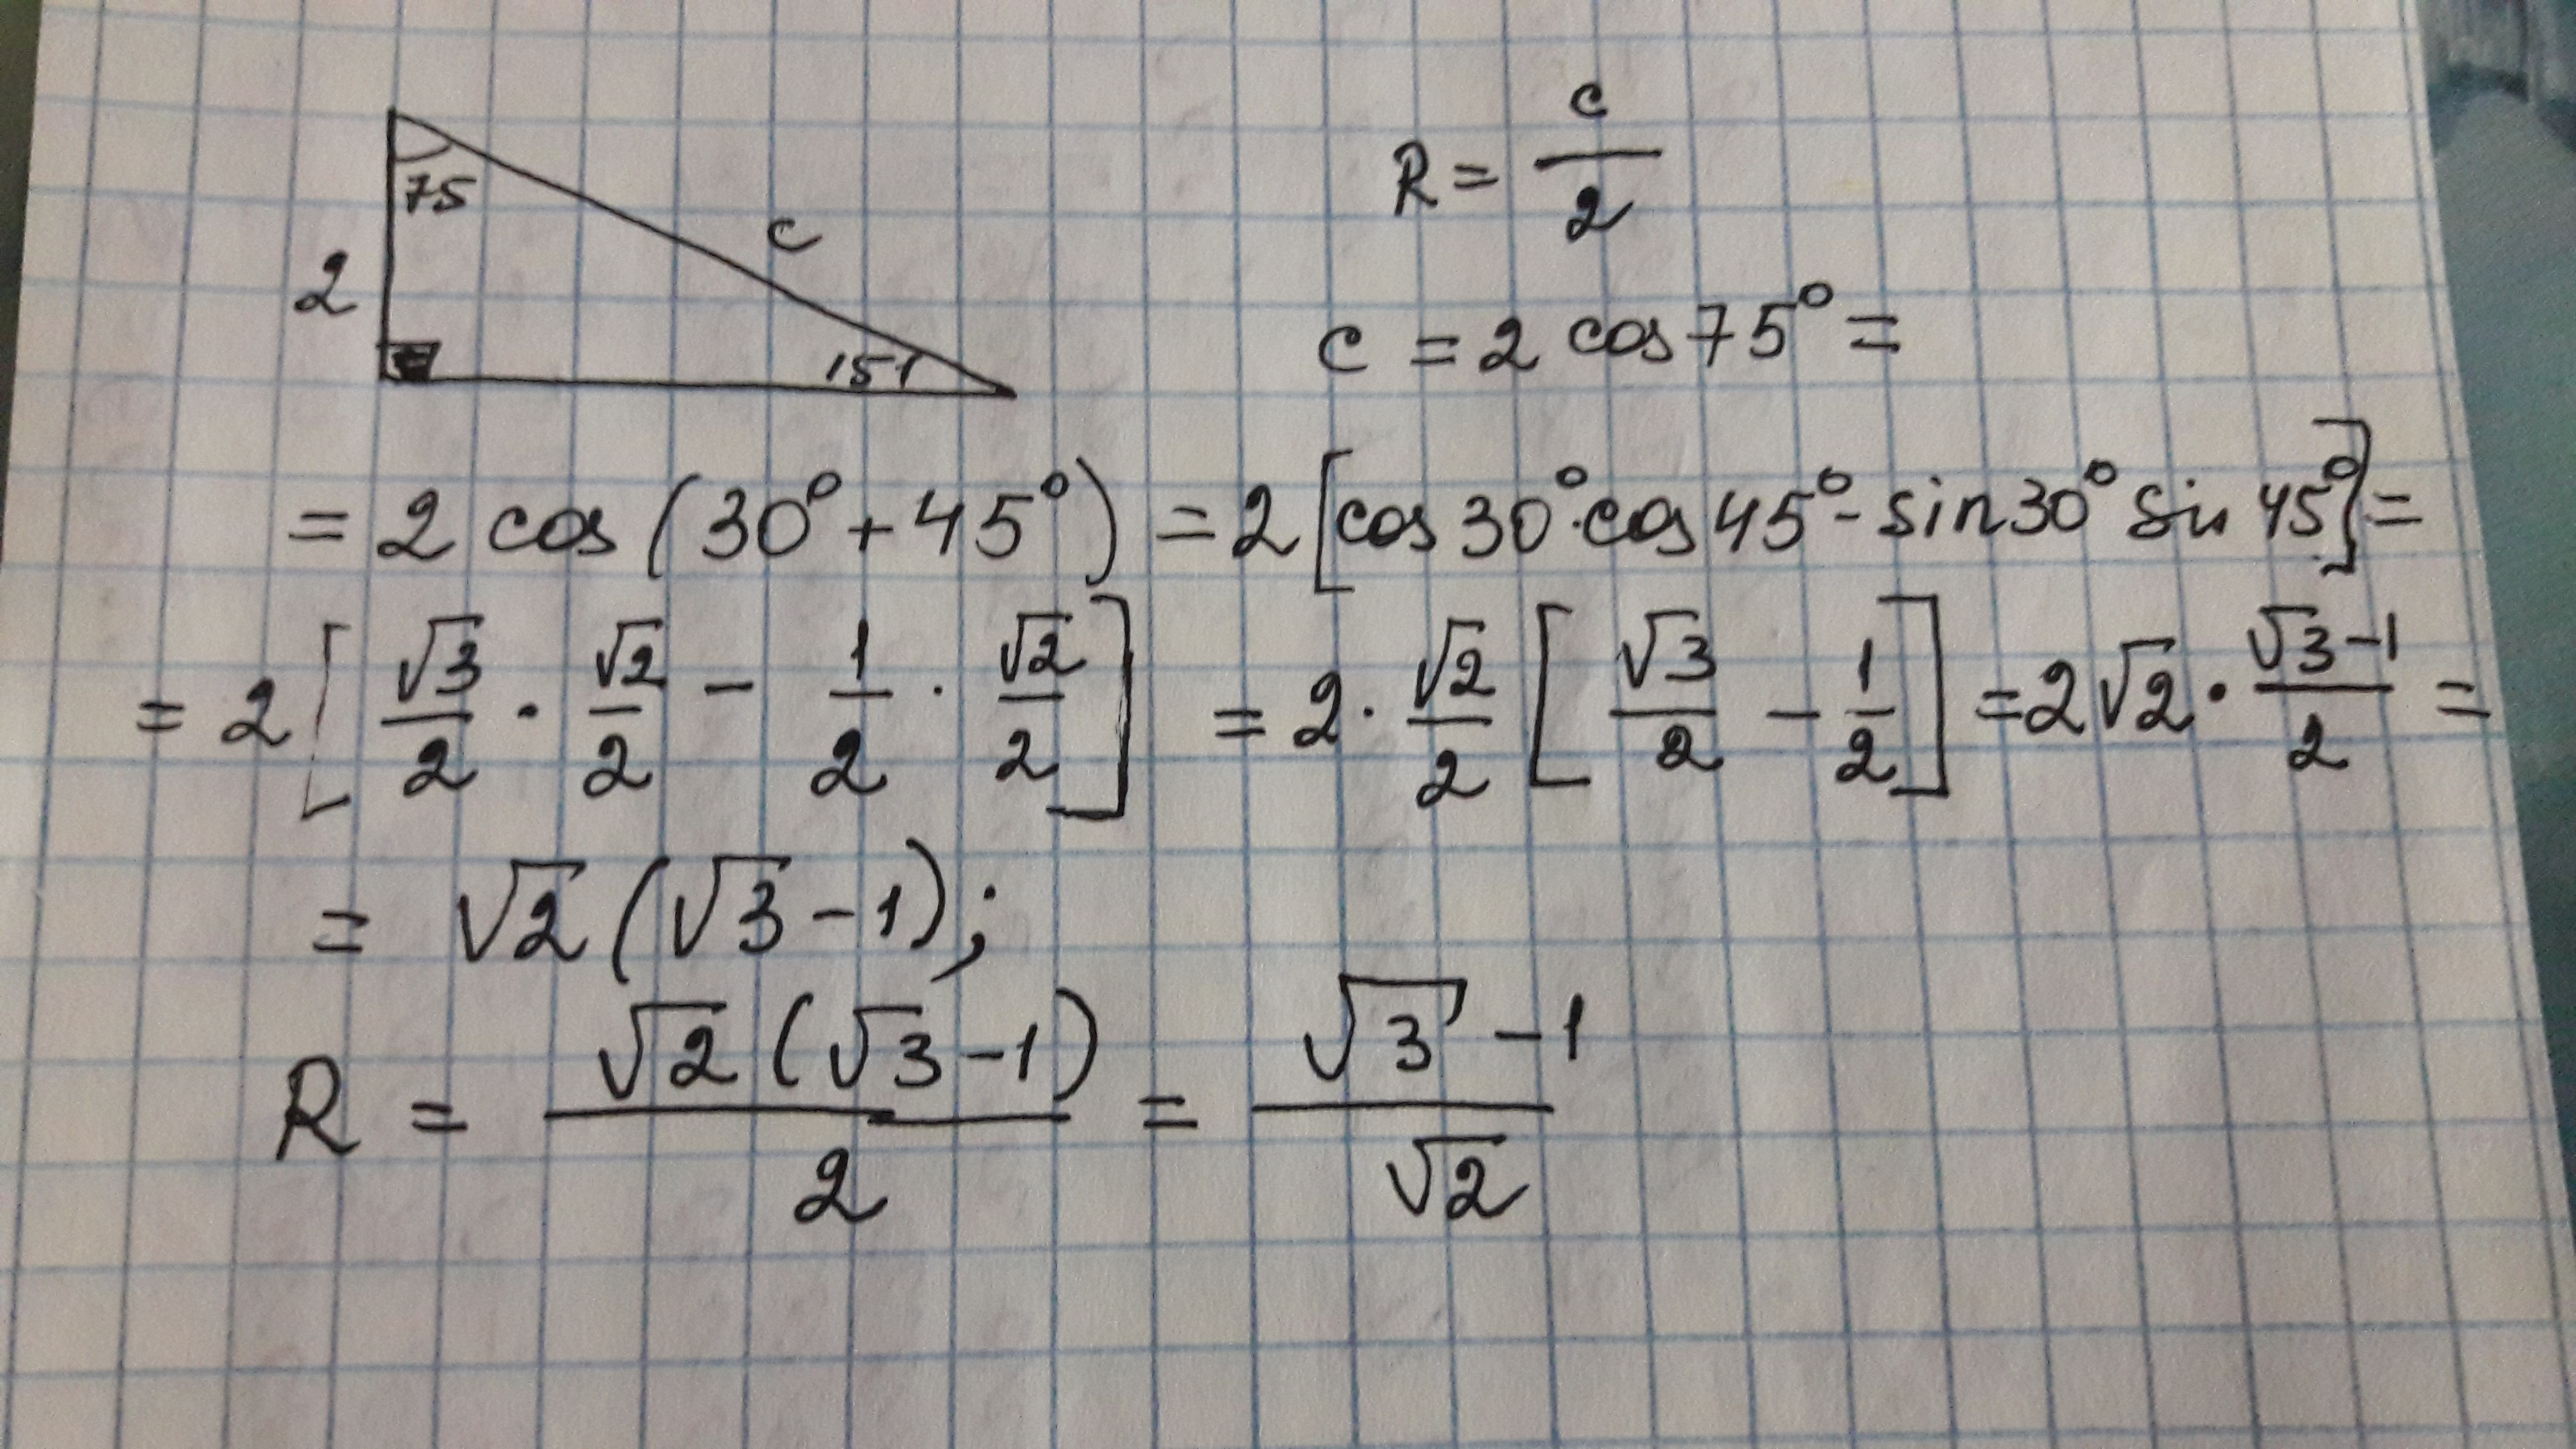 75
2
c
15
R = c/2
c = 2 cos 75° =
= 2 cos (30° + 45°) = 2 [cos 30° · cos 45° - sin 30° sin 45°] =
= 2 [√3/2 · √2/2 - 1/2 · √2/2] = 2 · √2/2 [√3/2 - 1/2] = 2√2 · (√3-1)/2 =
= √2 (√3 - 1);
R = √2 (√3 - 1)/2 = (√3 - 1)/√2